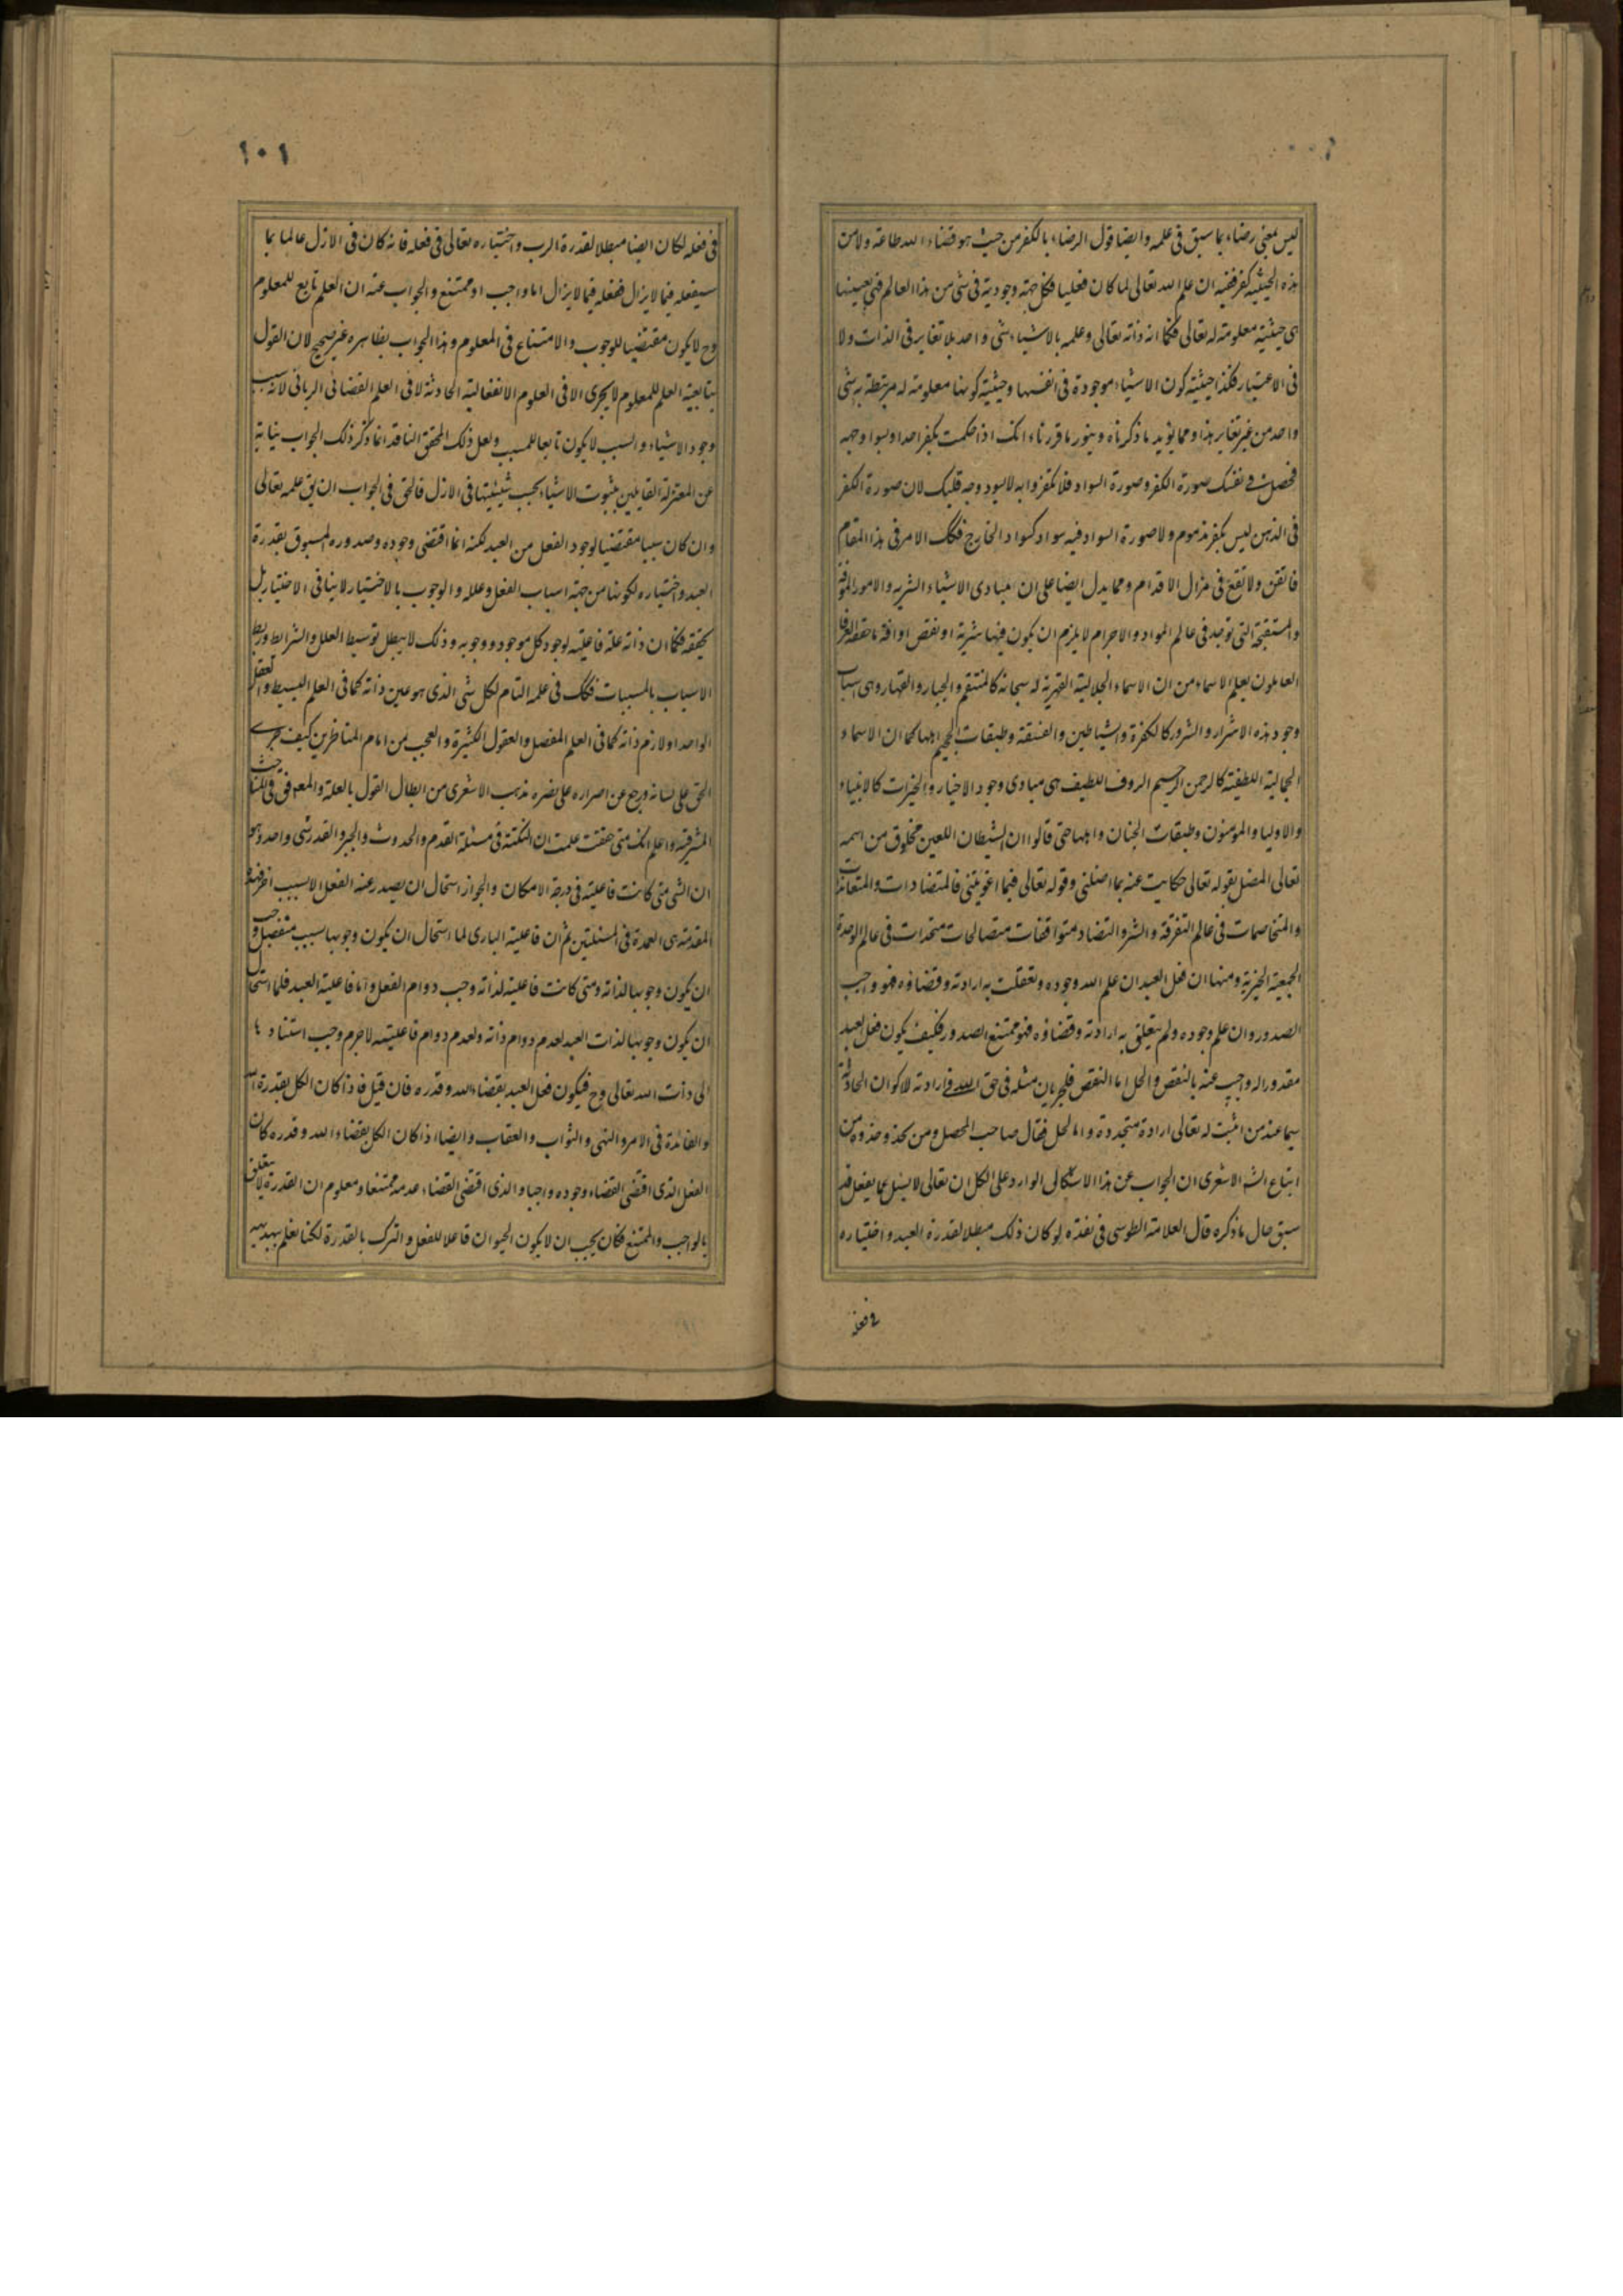 ليس بمعنى رضاء بما سبق فى علمه وايضا قول الرضاء بالكفر من حيث هو قضاء الله طاعة ولا من
هذه الحيثية كفر ففيه ان علم الله تعالى لما كان فعليا فكل جهة وجودية فى شى من هذا العالم فهى بعينها
هى حيثية معلومة له تعالى فكما انه ذاته تعالى وعلمه بالاشياء شى واحد بلا تغاير فى الذات ولا
فى الاعتبار فكذا حيثية كون الاشياء موجودة فى انفسها وحيثية كونها معلومة له مرتبطة به شى
واحد من غير تغاير هذا ومما يؤيد ما ذكرناه وينور ما قررناه انك اذا حكمت بكفر احد او بسواد وجهه
فحصلت فى نفسك صورة الكفر وصورة السواد فلا تكفر وا به لا يسود وجه قلبك لان صورة الكفر
فى الذهن ليس بكفر مذموم ولا صورة السواد فيه سواد كسواد الخارج فكك الامر فى هذا المقام
فاتقن ولا تقع فى مزال الاقدام ومما يدل ايضا على ان مبادى الاشياء الشريه والامور الموفة
والمستقبحة التى توجد فى عالم المواد والاجرام لا يلزم ان يكون فيها شرية او نقص او افة ما حققه العرفا
العاملون بعلم الاسماء من ان الاسماء الجلالية القهرية له سبحانه كالمنتقم والجبار والقهار وهى اسباب
وجود هذه الاشرار والشرور كالكفرة والشياطين والفسقة وطبقات الجحيم واهلها كما ان الاسماء
الجمالية اللطفية كالرحمن الرحيم الروف اللطيف هى مبادى وجود الاخيار والخيرات كالانبياء
والاوليا والمؤمنون وطبقات الجنان واهلها حتى قالوا ان الشيطان اللعين مخلوق من اسمه
تعالى المضل بقوله تعالى حكايت عنه بما اضلنى وقوله تعالى فبما اغويتنى فالمتضادات والمتعاندات
والمتخاصمات فى عالم التفرقة والشر والتضاد متوافقات متصالحات متحدات فى عالم الوحدة
الجمعية الخيرية ومنها ان فعل العبد ان علم الله وجوده وتعقلت به ارادته وقضاؤه فهو واجب
الصدور وان علم وجوده ولم يتعلق به ارادته وقضاؤه فهو ممتنع الصدور فكيف يكون فعل العبد
مقدورا له واجيب عنه بالنقص والحل اما النقص فلجريان مثله فى حق الله فى ارادته لاكوان الحادثة
سيما عند من اثبت له تعالى ارادة متجددة واما لحل فقال صاحب المحصل ومن يحذو حذوه من
اتباع الشـ الاشعرى ان الجواب عن هذا الاشكال الوارد على الكل ان تعالى لا يسئل عما يفعل قد
سبق حال ما ذكره قال العلامة الطوسى فى نقده لو كان ذلك مبطلا لقدرة العبد واختياره
فى فعله
١٠١
فى فعله لكان ايضا مبطلا لقدرة الرب واختياره تعالى فى فعله فانه كان فى الازل عالما بما
سيفعله فيما لا يزال ففعله فيما لا يزال اما واجب او ممتنع والجواب عنه ان العلم تابع للمعلوم
وح لا يكون مقتضيا للوجوب والامتناع فى المعلوم وهذا الجواب بظاهره غير صحيح لان القول
بتابعية العلم للمعلوم لا يجرى الا فى العلوم الانفعالية الحادثة لا فى العلم القضائى الربانى لانه سبب
وجود الاشياء والسبب لا يكون تابعا للمسبب ولعل ذلك المحقق الناقد انما ذكر ذلك الجواب نيابة
عن المعتزلة القايلين بثبوت الاشياء بحسب شيئيتها فى الازل فالحق فى الجواب ان يق علمه تعالى
وان كان سببا مقتضيا لوجود الفعل من العبد لكنه انما اقتضى وجوده وصدوره المسبوق بقدرة
العبد واختياره لكونها من جهة اسباب الفعل وعلله والوجوب بالاختيار لا ينافى الاختيار بل
يحققه فكما ان ذاته علة فاعلية لوجود كل موجود ووجوبه وذلك لا يبطل توسيط العلل والشرايط وربط
الاسباب بالمسببات فكك فى علمه التام لكل شى الذى هو عين ذاته كما فى العلم البسيط والعقل
الواحد او لازم ذاته كما فى العلم المفصل والعقول الكثيرة والعجب من امام المناظرين كيف جرى
الحق على لسانه ورجع عن اصراره على نصره مذهب الاشعرى من ابطال القول بالعلة والمعلول فى المباحث
المشرقية واعلم انك متى حققت علمت ان النكتة فى مسئلة القدم والحدوث والجبر والقدر شى واحد وهو
ان الشى متى كانت فاعليته فى درجة الامكان والجواز استحال ان يصدر عنه الفعل الا بسبب اخر فهذه
المقدمة هى العمدة فى المسئلتين ثم ان فاعلية البارى لما استحال ان يكون وجوبها بسبب منفصل وجب
ان يكون وجوبها لذاته ومتى كانت فاعلية لذاته وجب دوام الفعل واما فاعلية العبد فلما استحال
ان يكون وجوبها لذات العبد لعدم دوام ذاته ولعدم دوام فاعليته لا جرم وجب استنادها
الى ذات الله تعالى وح فيكون فعل العبد بقضاء الله وقدره فان قيل فاذا كان الكل بقدرة الله
والفائدة فى الامر والنهى والثواب والعقاب وايضا اذا كان الكل بقضاء الله وقدره كان
الفعل الذى اقتضى القضاء وجوده واجبا والذى اقتضى القضاء عدمه ممتنعا ومعلوم ان القدرة لا يتعلق
بالواجب والممتنع فكان يجب ان لا يكون الحيوان فاعلا للفعل والترك بالقدرة لكنا نعلم ببديهية